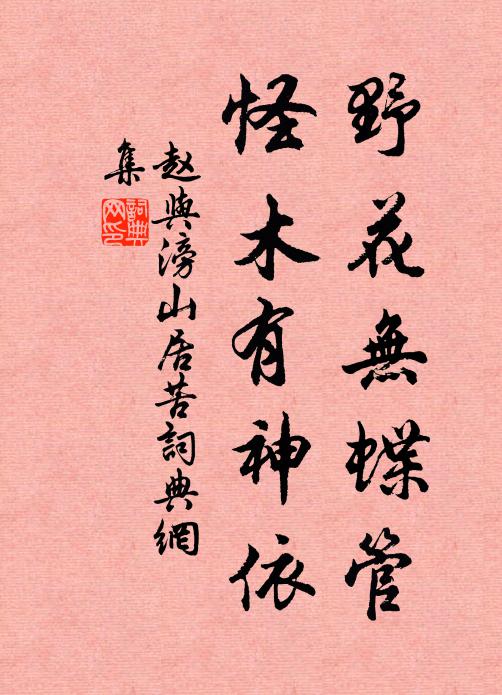 野花無蝶管
怪木有神依
赵與滂山居苦詞典網
集
詞典
网印